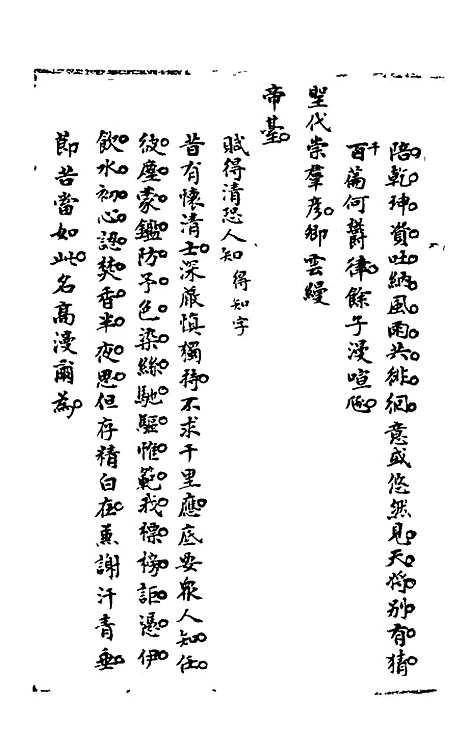 陪乾坤資吐納風雨共徘徊意或悠然見天將別有猜
千百篇何鬱律餘子漫喧豗
聖代崇羣彥卿雲縵
帝基
賦得清恐人知得知字
昔有懷清士深嚴慎獨時不求千里應底要眾人知任
彼塵蒙鑑防予色染絲馳驅惟範我標榜詎憑伊
飲水初心認焚香半夜思但存精白在熏謝汗青垂
節苦當如此名高漫爾為